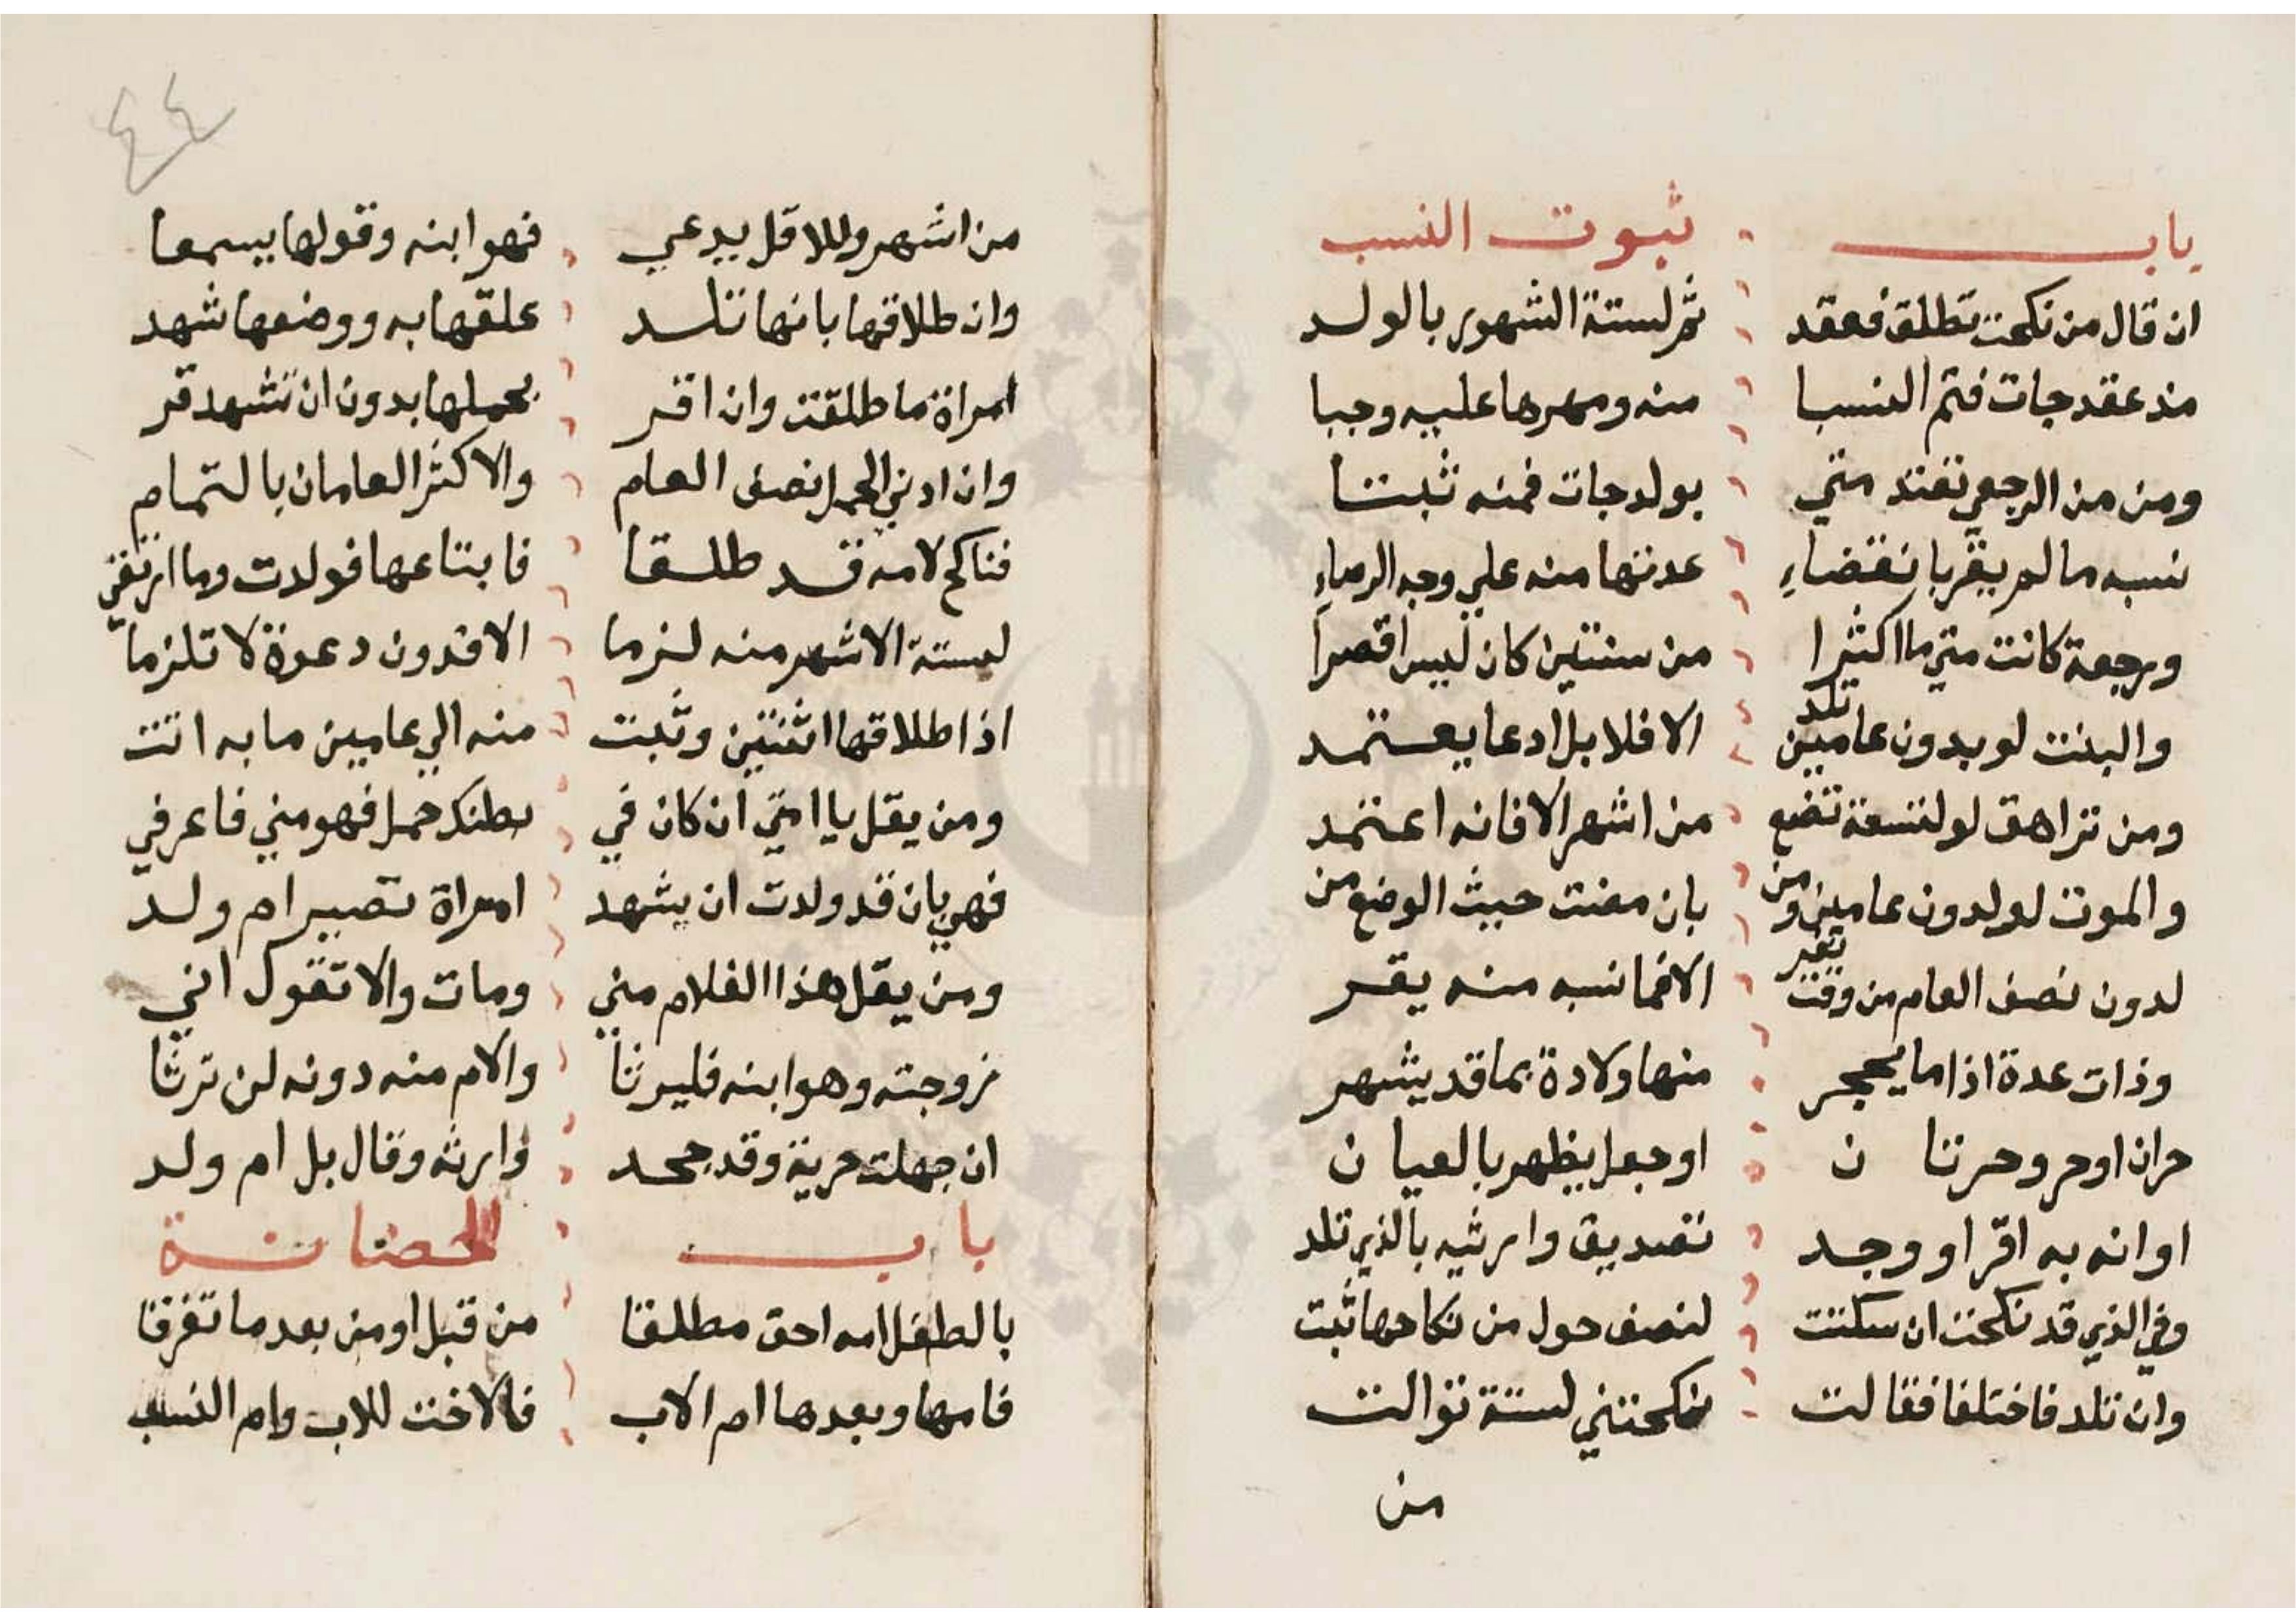 باب ثبوت النسب
ان قال من نكحت تطلق فعقد ثم لستة الشهور بالولد
مذ عقد جات فتم النسبا منه ومهرها عليه وجبا
ومن من الرجعي تعتد متي بولد جات فمنه ثبتتا
نسبه ما لم يقر بانقضاءِ عدتها منه علي وجه الرضاءِ
ورجعة كانت متي ما اكثرا من سنتين كان ليس اقصرا
والبنت لو بدون عامين تلد الا فلا بل ادعا يعتمد
ومن تراهق لو لتسعة تضع من اشهر الا فانه اعتمد
والموت لو لدون عامين ومن بان مضت حيث الوضع من
لدون نصف العام من وقت تقر الا فما نسبه منه يقر
وذات عدة اذا ما يحجر منها ولادة بما قد يشهر
حران او حر وحرتان او حمل يظهر بالعيان
او انه به اقرا ووجد تصديق وارثيه بالذي تلد
وفي الذي قد نكحت ان سكتت لنصف حول من نكاحها ثبت
وان تلد فاختلفا فقالت نكحتني لستة توالت
من
٤٤
من اشهر وللاقل يدعي فهو ابنه وقولها يسمعا
وان طلاقها بانها تلد علقها به ووضعها شهد
امراة ما طلقت وان اقر بحملها بدون ان تشهد قر
وان ادني الحمل نصف العام والاكثر العامان بالتمام
فناكح لامه قد طلقا فابتاعها فولدت وما ارتقي
لستة الاشهر منه لزما الا فدون دعوة لا تلزما
اذا طلاقها اثنتين وثبت منه الي عامين ما به اتت
ومن يقل يا امتي ان كان في بطنك حمل فهو مني فاعرفي
فهي بان قد ولدت ان يشهد امراة تصير ام ولد
ومن يقل هذا الغلام مني ومات والا تقول اني
زوجته وهو ابنه فليرثا والام منه دونه لن ترثا
ان جهلت حرية وقد جحد وارثه وقال بل ام ولد
باب الحضانة
بالطفل امه احق مطلقا من قبل او من بعد ما تفرقا
فامها وبعدها ام الاب فالاخت للاب وام النسب